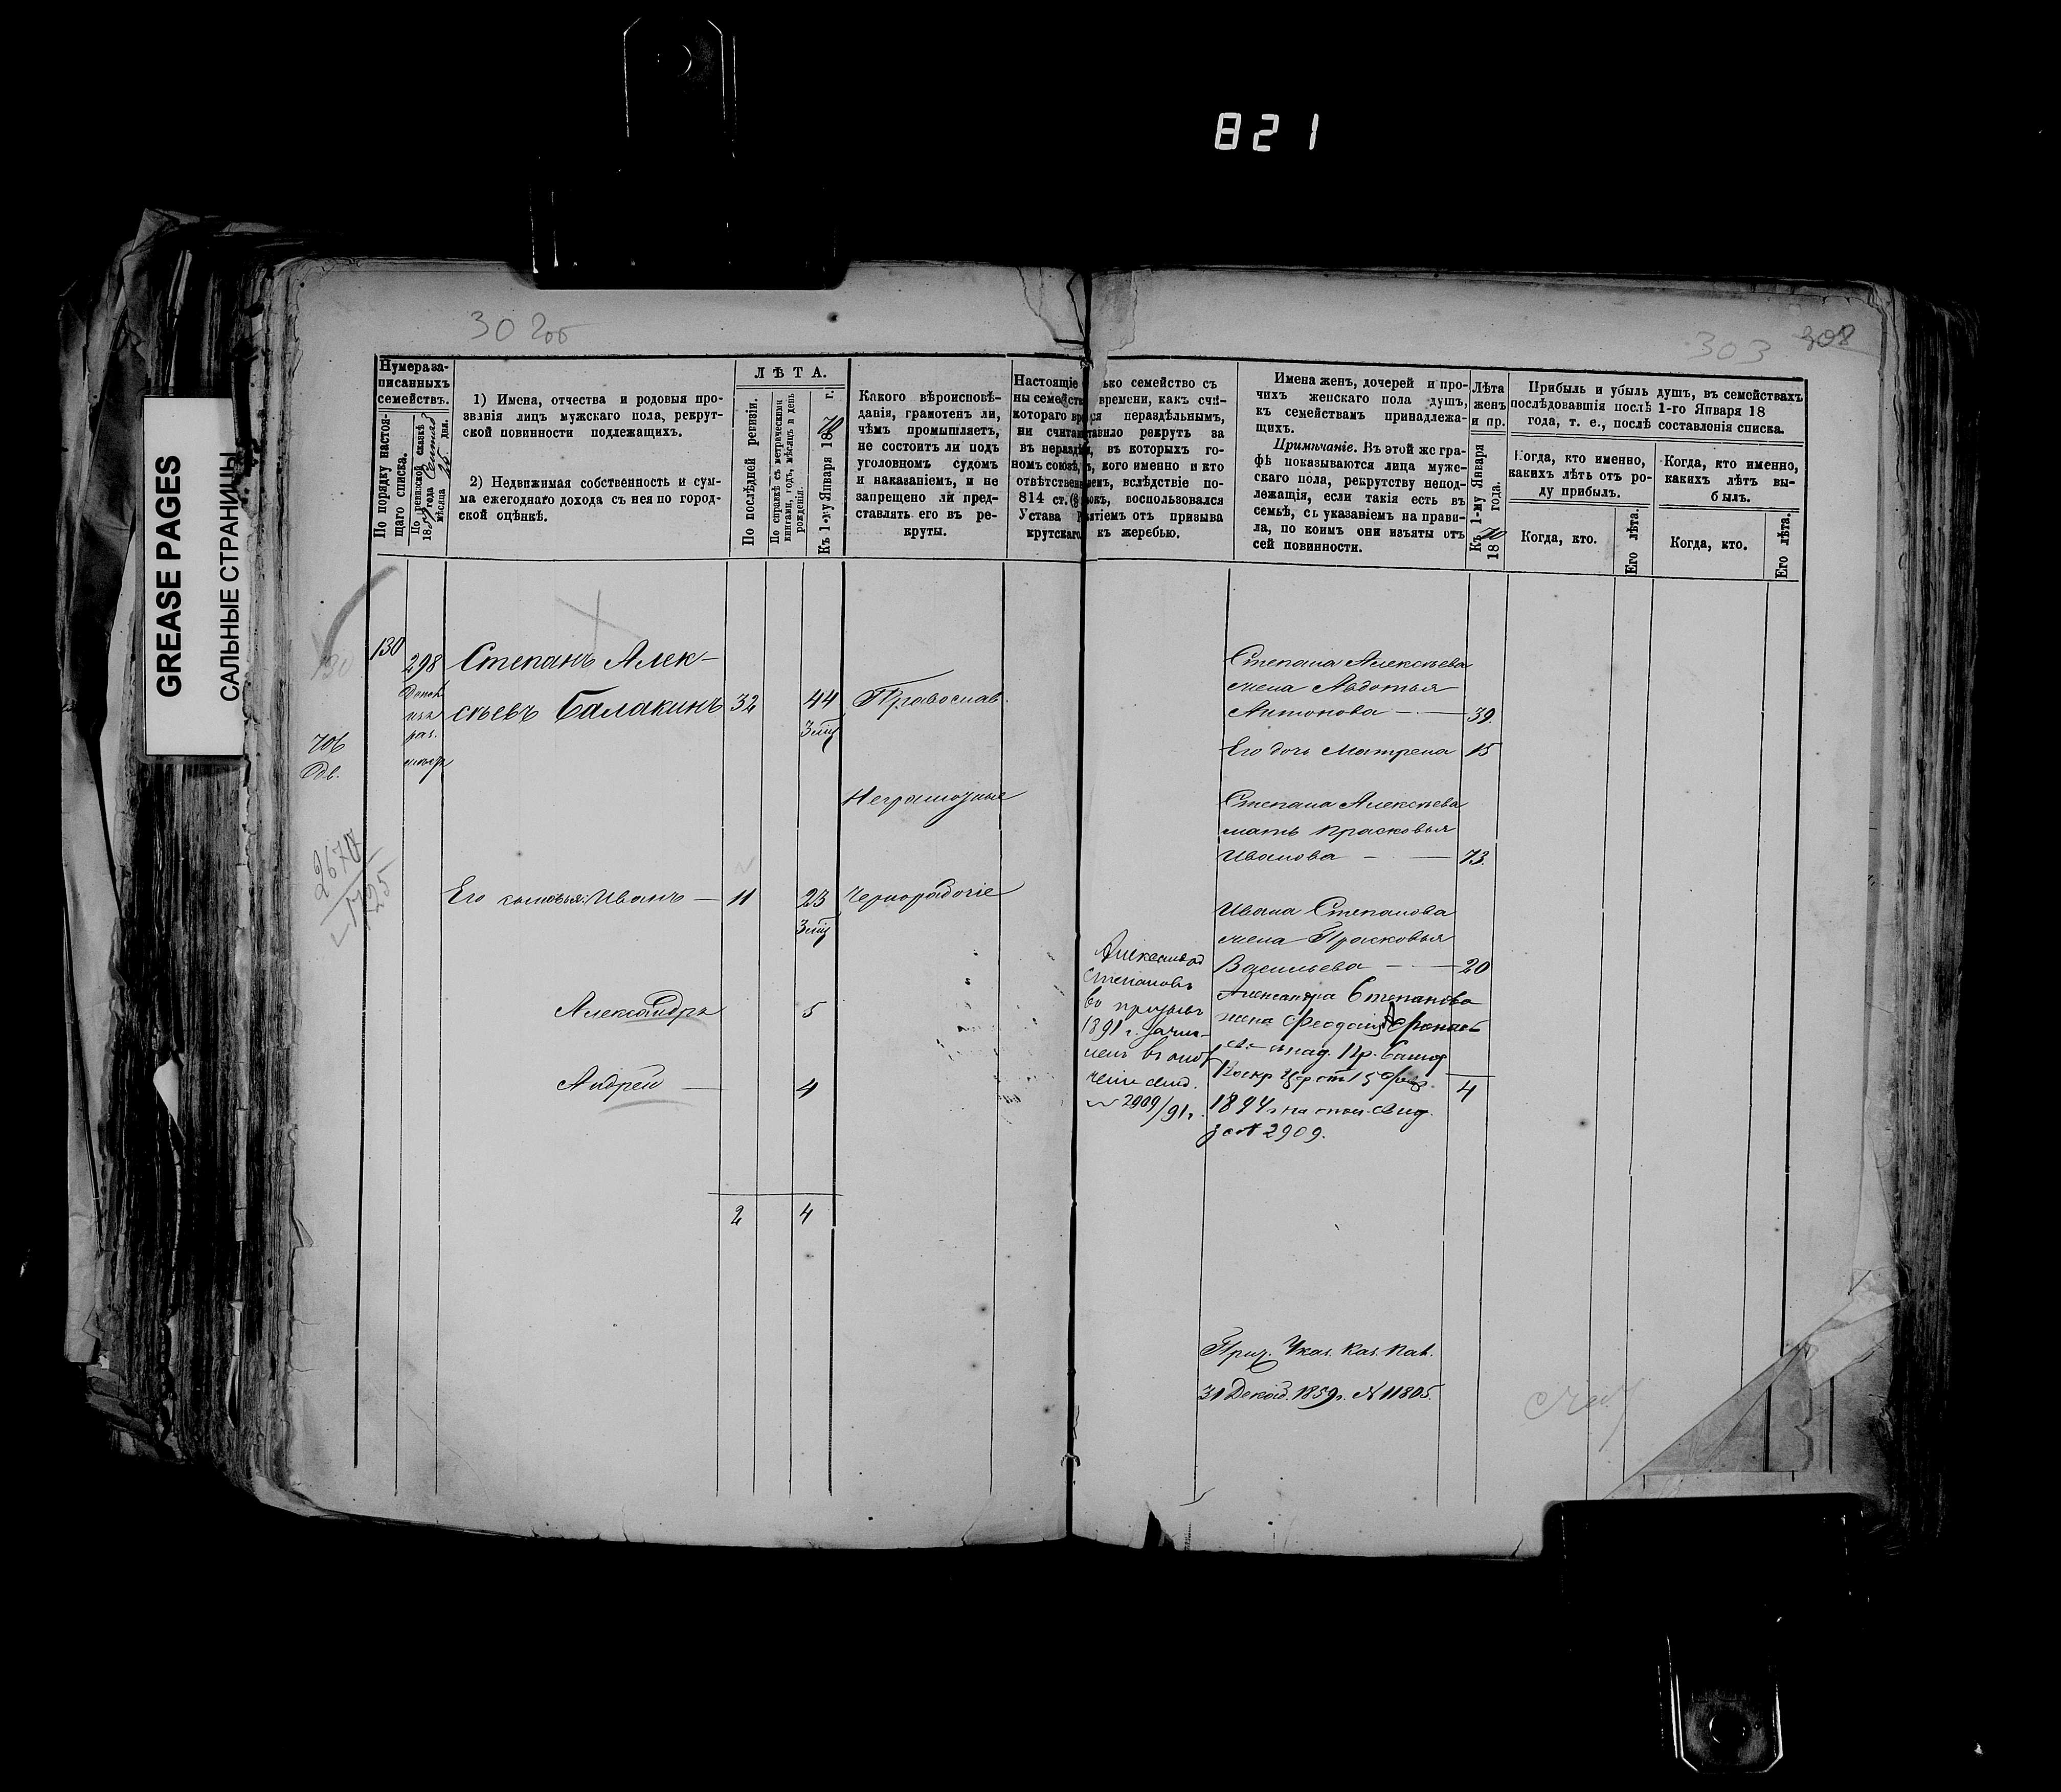 821
GREASE PAGES
САЛЬНЫЕ СТРАНИЦЫ
302об
303
308
Нумера за-
писанныхъ
семействъ.
По порядку настоя-
щаго списка.
По ревизской сказкѣ
года
мѣсяца 25 дня.
1) Имена, отчества и родовыя про-
званія лицъ мужскаго пола, рекрут-
ской повинности подлежащихъ.
2) Недвижимая собственность и сум-
ма ежегоднаго дохода съ нея по город-
ской оцѣнкѣ.
ЛѢТА.
По послѣдней ревизіи.
По справкѣ съ метрическими
книгами, годъ, мѣсяцъ и день
рожденія.
Къ 1-му Января 1870 г.
Какого вѣроисповѣ-
данія, грамотенъ ли,
чѣмъ промышляетъ,
не состоитъ ли подъ
уголовномъ судомъ
и наказаніемъ, и не
запрещено ли пред-
ставлять его въ ре-
круты.
Настоящіе
ны семейств
котораго
ни
въ
номъ союзѣ,
814 ст.
Устава
крутскаго
семейство съ
времени, какъ счи-
нераздѣльнымъ,
рекрутъ за
въ которыхъ го-
кого именно и кто
вслѣдствіе по-
воспользовался
отъ призыва
къ жеребью.
Имена женъ, дочерей и про-
чихъ женскаго пола душъ,
къ семействамъ принадлежа-
щихъ.
Примѣчаніе. Въ этой же гра-
фѣ показываются лица муже-
скаго пола, рекрутству непод-
лежащія, если такія есть въ
семьѣ, съ указаніемъ на прави-
ла, по коимъ они изъяты отъ
сей повинности.
Лѣта
женъ
и пр.
Къ 1-му Января
1870 года.
Прибыль и убыль душъ, въ семействахъ
послѣдовавшія послѣ 1-го Января 18
года, т. е., послѣ составленія списка.
Когда, кто именно,
какихъ лѣтъ отъ ро-
ду прибылъ.
Когда, кто.
Его лѣта.
Когда, кто именно,
какихъ лѣтъ вы-
былъ.
Когда, кто.
Его лѣта.
130
130
298
706
Степанъ Алек-
сѣевъ Балакинъ 32 44 Православ.
Неграмотные
Его сыновья: Иванъ — 11 23 Чернорабочіе
Александръ 5
Андрей — 4
2 4
Александр
Степановъ
въ призывъ
1891 г. зачис-
ленъ въ опол
ченіе свид.
№ 2909/91 г.
Степана Алексѣева
жена Авдотья
Антонова — 39
Его дочь Матрена 15
Степана Алексѣева
мать Прасковья
Иванова — 73
Ивана Степанова
жена Прасковья
Васильева — 20
Александра Степанова
жена
4
1894 г. на
за № 2909.
Прич. Указ. Каз. Пал.
31 Декаб. 1859 г. № 11805.